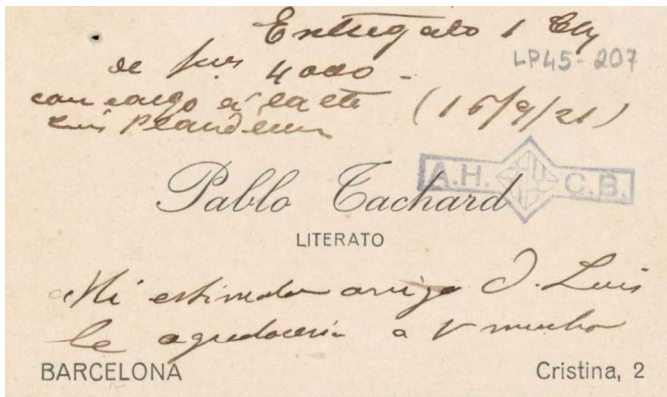 Entregado 1
de ptas 4000 -
LP45-207
con cargo á la cta (15/9/21)
Luis Plandiura
A.H. C.B.
Pablo Tachard
LITERATO
Mi estimado amigo D. Luis
le agradeceria a V mucho
BARCELONA Cristina, 2